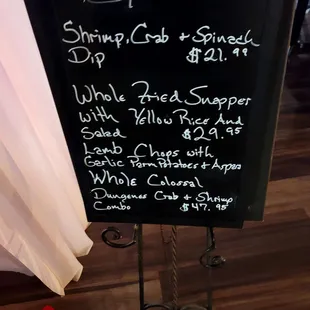 Shrimp, Crab + Spinach
Dip $21.99
Whole Fried Snapper
with Yellow Rice And
Salad $29.95
Lamb Chops with
Garlic Parm Potatoes + Aspara
Whole Colossal
Dungenes Crab + Shrimp
Combo $47.95